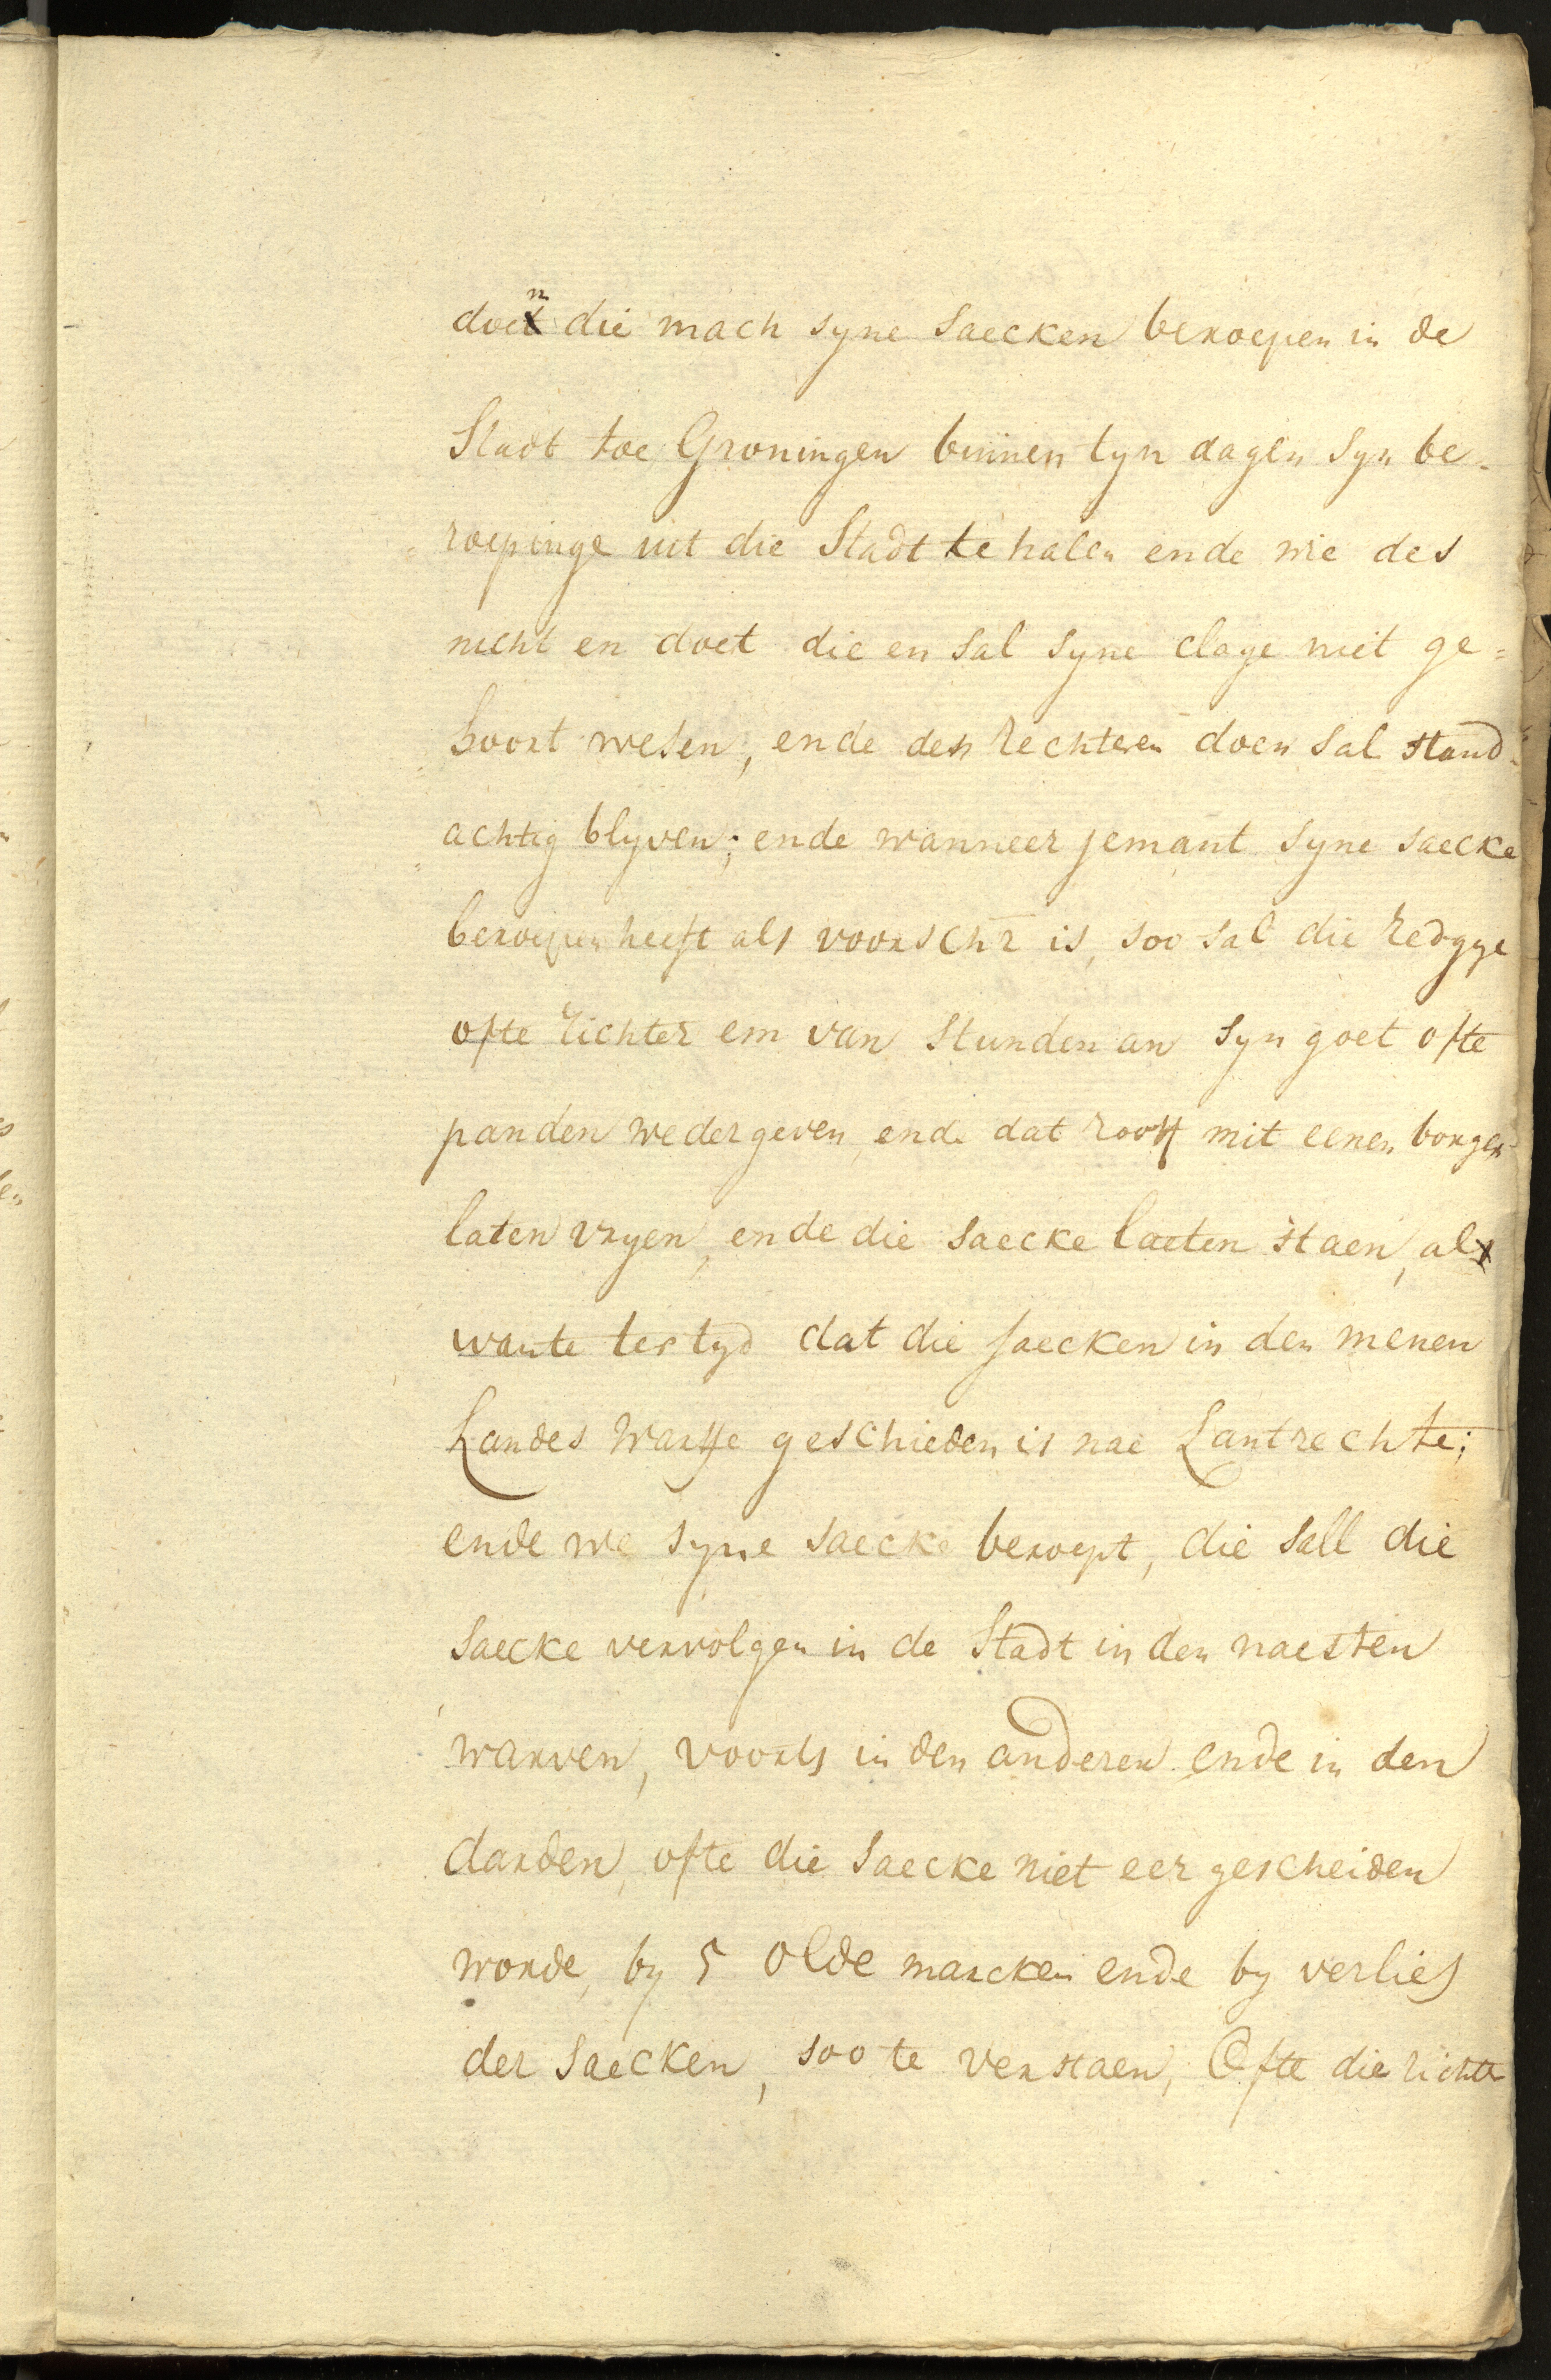 doen die mach syne saecken beroepen in de
Stadt toe Groningen binnen tyn dagen syn be-
roepinge uit die Stadt te halen ende wie des
nicht en doet die en sal syne clage niet ge=
hoort wesen, ende des rechteren doen sal stand-
achtig blyven; ende wanneer jemant syne saecke
beroepen heeft als voorschr is, soo sal die Redgye
ofte richter em van stunden an syn goet ofte
panden wedergeven, ende dat rooff mit eenen borgen
laten vryen, ende die saecke laeten staen, al
wante ter tyd dat die saecken in den menen
Landes warffe geschieden is nae Lantrechte;
ende we syne saecke beroept, die sall die
saecke vervolgen in de Stadt in den naesten
warven, voorts in den anderen ende in den
darden, ofte die saecke niet eer gescheiden
worde, by 5 olde marcken ende by verlies
der saecken, soo te verstaen, Ofte die richter